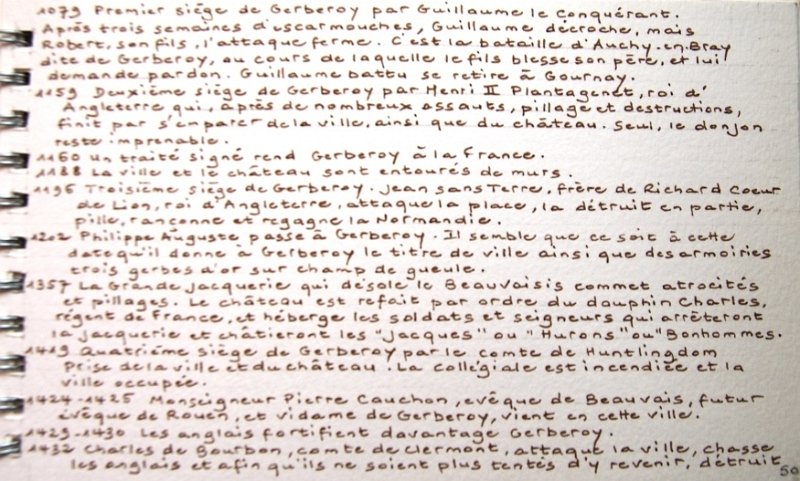 1079 Premier siège de Gerberoy par Guillaume le Conquérant.
Après trois semaines d'escarmouches, Guillaume décroche, mais
Robert, son fils, l'attaque ferme. C'est la bataille d'Auchy-en-Bray
dite de Gerberoy, au cours de laquelle le fils blesse son père, et lui
demande pardon. Guillaume battu se retire à Gournay.
1159 Deuxième siège de Gerberoy par Henri II Plantagenet, roi d'
Angleterre qui, après de nombreux assauts, pillage et destructions,
finit par s'emparer de la ville, ainsi que du château. Seul, le donjon
reste imprenable.
1160 Un traité signé rend Gerberoy à la France.
1188 La ville et le château sont entourés de murs.
1196 Troisième siège de Gerberoy. Jean sans Terre, frère de Richard Coeur
de Lion, roi d'Angleterre, attaque la place, la détruit en partie,
pille, rançonne et regagne la Normandie.
1202 Philippe Auguste passe à Gerberoy. Il semble que ce soit à cette
date qu'il donne à Gerberoy le titre de ville ainsi que des armoiries
trois gerbes d'or sur champ de gueule.
1357 La Grande Jacquerie qui désole le Beauvaisis commet atrocités
et pillages. Le château est refait par ordre du dauphin Charles,
régent de France, et héberge les soldats et seigneurs qui arrêteront
la jacquerie et châtieront les "Jacques" ou "Hurons" ou "Bonhommes.
1419 Quatrième siège de Gerberoy par le comte de Huntlingdom
Prise de la ville et du château. La Collégiale est incendiée et la
ville occupée.
1424-1425 Monseigneur Pierre Cauchon, evêque de Beauvais, futur
évêque de Rouen, et vidame de Gerberoy, vient en cette ville.
1429-1430 Les anglais fortifient davantage Gerberoy.
1432 Charles de Bourbon, comte de Clermont, attaque la ville, chasse
les anglais et afin qu'ils ne soient plus tentés d'y revenir, détruit
50